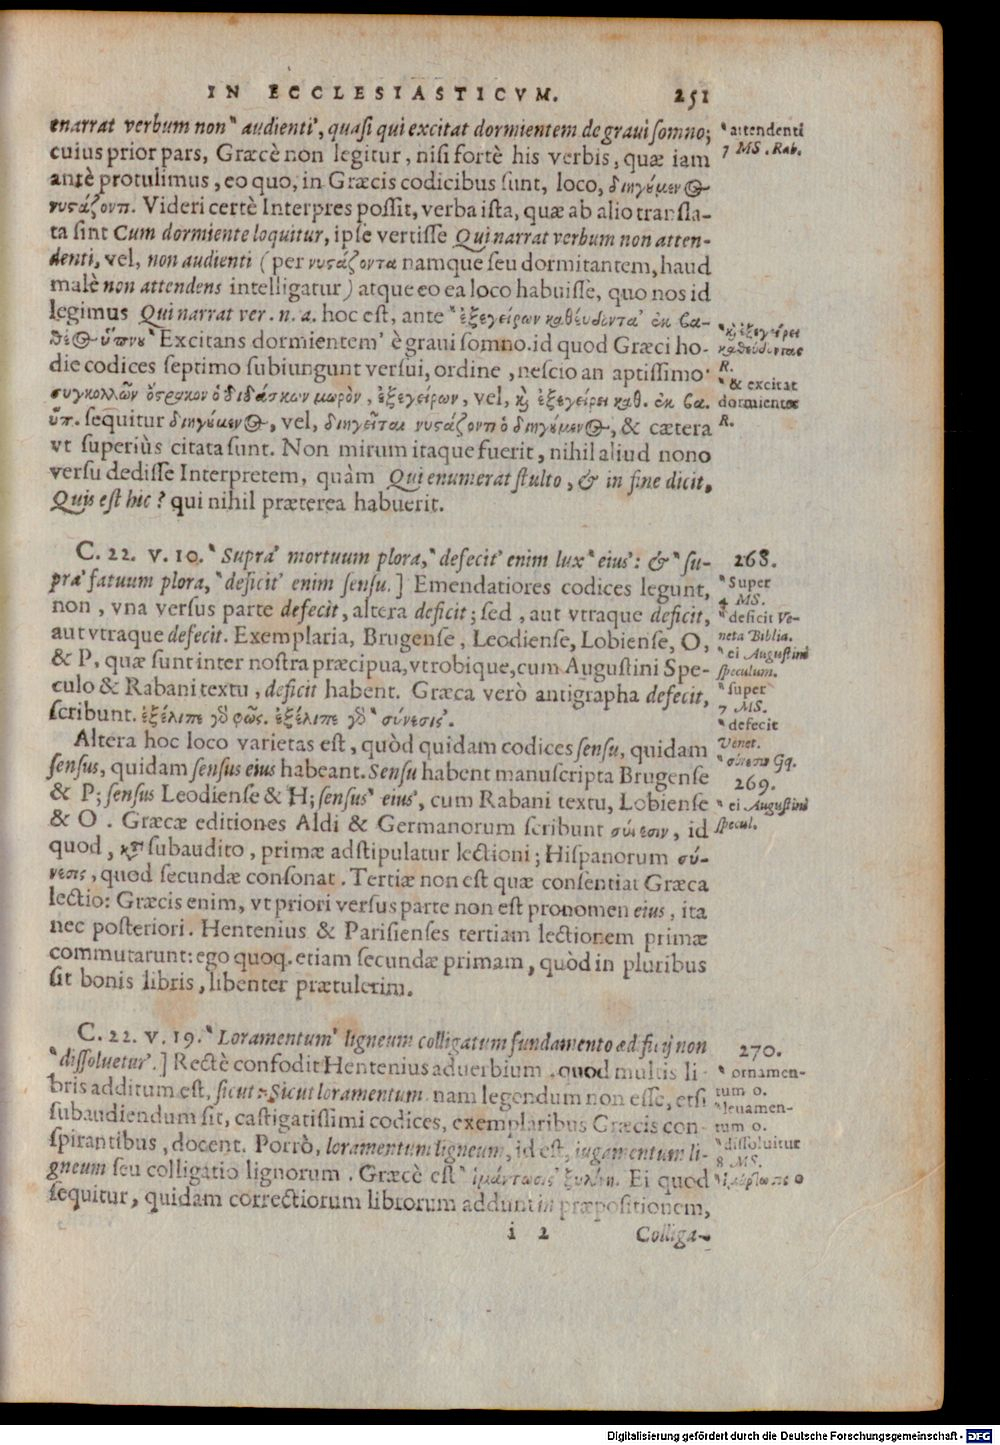 IN ECCLESIASTICVM. 251
enarrat verbum non" audienti', quasi qui excitat dormientem de graui somno;
cuius prior pars, Græcè non legitur, nisi fortè his verbis, quæ iam
antè protulimus, eo quo, in Græcis codicibus sunt, loco, διηγούμενος
νυστάζοντι. Videri certè Interpres possit, verba ista, quæ ab alio transla-
ta sint Cum dormiente loquitur, ipse vertisse Qui narrat verbum non atten-
denti, vel, non audienti (per νυστάζοντα namque seu dormitantem, haud
malè non attendens intelligatur) atque eo ea loco habuisse, quo nos id
legimus Qui narrat ver. n. a. hoc est, ante "ἐξεγείρων καθεύδοντα' ἐκ βα-
θέος ὕπνου "Excitans dormientem' è graui somno. id quod Græci ho-
die codices septimo subiungunt versui, ordine, nescio an aptissimo·
συγκολλῶν ὄστρακον ὁ διδάσκων μωρὸν, ἐξεγείρων, vel, καὶ ἐξεγείρει καθ. ἐκ βα.
ὕπ. sequitur διηγούμενος, vel, διηγεῖται νυστάζοντι ὁ διηγούμενος, & cætera
vt superiùs citata sunt. Non mirum itaque fuerit, nihil aliud nono
versu dedisse Interpretem, quàm Qui enumerat stulto, & in fine dicit,
Quis est hic? qui nihil præterea habuerit.
"attendenti
7 MS. Rab.
"καὶ ἐξεγείρει
καθεύδοντας
R.
"& excitat
dormientes
R.
C. 22. v. 10. "Supra' mortuum plora, "defecit' enim lux" eius': & "su-
pra' fatuum plora, "deficit' enim sensu.] Emendatiores codices legunt,
non, vna versus parte defecit, altera deficit; sed, aut vtraque deficit,
aut vtraque defecit. Exemplaria, Brugense, Leodiense, Lobiense, O,
& P, quæ sunt inter nostra præcipua, vtrobique, cum Augustini Spe-
culo & Rabani textu, deficit habent. Græca verò antigrapha defecit,
scribunt. ἐξέλιπε γὸ φῶς. ἐξέλιπε γὸ "σύνεσις'.
Altera hoc loco varietas est, quòd quidam codices sensu, quidam
sensus, quidam sensus eius habeant. Sensu habent manuscripta Brugense
& P; sensus Leodiense & H; sensus" eius', cum Rabani textu, Lobiense
& O. Græcæ editiones Aldi & Germanorum scribunt σύνεσιν, id
quod, κατὰ subaudito, primæ adstipulatur lectioni; Hispanorum σύ-
νεσις, quod secundæ consonat. Tertiæ non est quæ consentiat Græca
lectio: Græcis enim, vt priori versus parte non est pronomen eius, ita
nec posteriori. Hentenius & Parisienses tertiam lectionem primæ
commutarunt: ego quoq. etiam secundæ primam, quòd in pluribus
sit bonis libris, libenter prætulerim.
268.
"Super
4 MS.
"deficit Ve-
neta Biblia.
"ei Augustini
speculum.
"super
7 MS.
"defecit
Venet.
"σύνεσιν Gq.
269.
"ei Augustini
specul.
C. 22. v. 19. "Loramentum' ligneum colligatum fundamento ædificij non
"dissoluetur'.] Rectè confodit Hentenius aduerbium, quod multis li-
bris additum est, sicut: Sicut loramentum. nam legendum non esse, etsi
subaudiendum sit, castigatissimi codices, exemplaribus Græcis con-
spirantibus, docent. Porrò, loramentum ligneum, id est, iugamentum li-
gneum seu colligatio lignorum. Græcè est "ἱμάντωσις' ξυλίνη. Ei quod
sequitur, quidam correctiorum librorum addunt in præpositionem,
270.
"ornamen-
tum O.
"leuamen-
tum O.
"dissoluitur
8 MS.
i 2 Colliga-
Digitalisierung gefördert durch die Deutsche Forschungsgemeinschaft - DFG